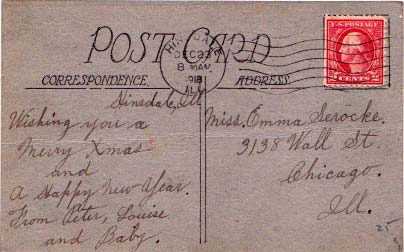 POST CARD
HINSDALE
DEC 23
8 30AM
1918
ILL.
U.S. POSTAGE
2 CENTS 2
CORRESPONDENCE.
ADDRESS
Hinsdale, Ill
Wishing you a
Merry Xmas
and
A Happy New Year.
From Peter, Louise
and Baby.
Miss. Emma Serocke.
3138 Wall St.
Chicago.
Ill.
25